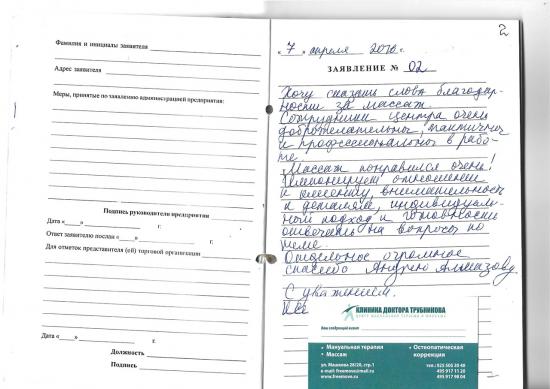 Фамилия и инициалы заявителя
Адрес заявителя
Меры, принятые по заявлению администрацией предприятия:
Подпись руководителя предприятия
Дата «____» г.
Ответ заявителю послан «____» г.
Для отметок представителя (ей) торговой организации
Дата «____» г.
Должность
Подпись
2
« 7 » апреля 2016 г.
ЗАЯВЛЕНИЕ № 02
Хочу сказать слова благодар-
ности за массаж.
Сотрудники центра очень
доброжелательны, тактичны
и профессиональны в рабо-
те.
Массаж понравился очень!
Импонирует отношение
к клиенту, внимательность
к деталям, индивидуаль-
ный подход и готовность
отвечать на вопросы по
теме.
Отдельное огромное
спасибо Андрею Алмазову.
С уважением,
КЛИНИКА ДОКТОРА ТРУБНИКОВА
ЦЕНТР МАНУАЛЬНОЙ ТЕРАПИИ И МАССАЖА
Ваш следующий визит
• Мануальная терапия
• Массаж
• Остеопатическая
коррекция
ул. Машкова 28/20, стр.1
e-mail: freemove@mail.ru
www.freemove.ru
тел.: 925 505 39 40
495 917 11 20
495 917 98 04